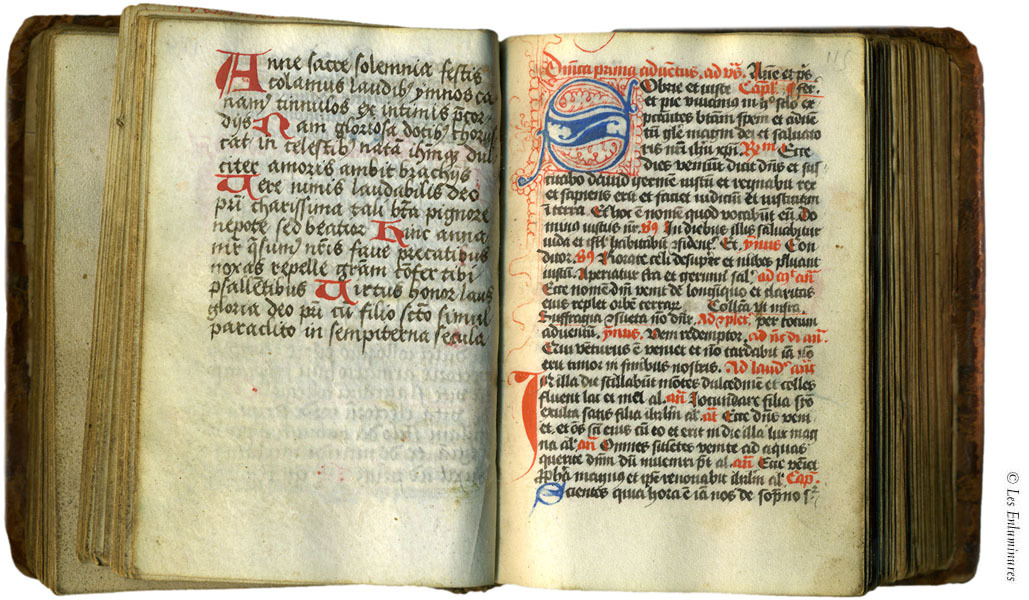 Anne sacre solemnia festis
colamus laudib9 ymnos ca
nam9 tinnulos ex intimis p̄cor
dijs Nam gloriosa dotib9 chorus
cat in celestib9 natā ihm̄q; dul
citer amoris ambit brachijs
Vere nimis laudabilis deo
pr̄i charissima tali bt̄a pignore
nepote sed beatior Hinc anna
mr̄ q̄sum9 nr̄is fave precatibus
noxas repelle grām cōfer tibi
psallētibus Virtus honor laus
gloria deo pr̄i cū filio sct̄o simul
paraclito in sempiterna secula
115
Dn̄ica prima aduētus, ad vs̄. Añe et ps̄
Sobrie et iuste Capl̄ fer.
et pie viuamus in
pectātes btām spem et aduē
tū gl̄e magni dei et saluato
ris nr̄i ihū xpi Rm̄ Ecce
dies veniūt dicit dn̄s et sus
citabo dauid germē iustū et regnabit rex
et sapiens erit et faciet iudiciū et iusticiam
ī terra. Et hoc ē nomē quod vocabūt eū. Do
minus iustus nr̄. v9 In diebus illis saluabitur
iuda et isrl̄ habitabit 9fidēt. Et. ymnus Con
ditor. v9 Rorate celi desuper et nubes pluant
iustū. Aperiatur tr̄a et germīt sal. ad añ
Ecce nomē dn̄i venit de longīquo et claritas
eius replet orbē terrar. Collc̄a vt infra.
Suffragia 9sueta nō dn̄r. Ad 9plet. per totum
aduentū. ymus. Veni redemptor. ad di añ.
Ecce venturus ē veniet et nō tardabit iā nō
erit timor in finibus nostris. Ad laud. añt
In illa die stillabūt mōtes dulcedinē et colles
fluent lac et mel al. añ Iocundare filia syō
exulta satis filia ihrlm̄ al. añ Ecce dn̄s veni
et, et oēs sc̄i eius cū eo et erit in die illa lux mag
na al. añ Omnes sitiētes venite ad aquas
querite dn̄m dū inueniri pt̄ al. añ Ecce veniet
ppha magnus et ipse renouabit ihrlm̄ al. Cap.
Scientes quia hora ē iā nos de sopno
© Les Enluminures